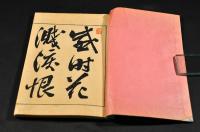 感时花
溅泪恨